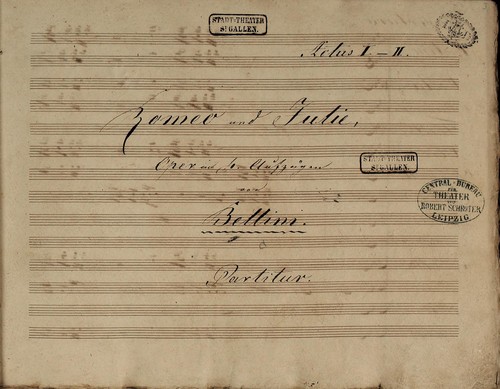 STADT-THEATER
ST GALLEN.
Actus I. – II.
Romeo und Julie,
Oper in Aufzügen
von
STADT-THEATER
ST GALLEN.
CENTRAL-BUREAU
FÜR
THEATER
VON
ROBERT SCHRÖTER
LEIPZIG
Bellini.
Partitur.